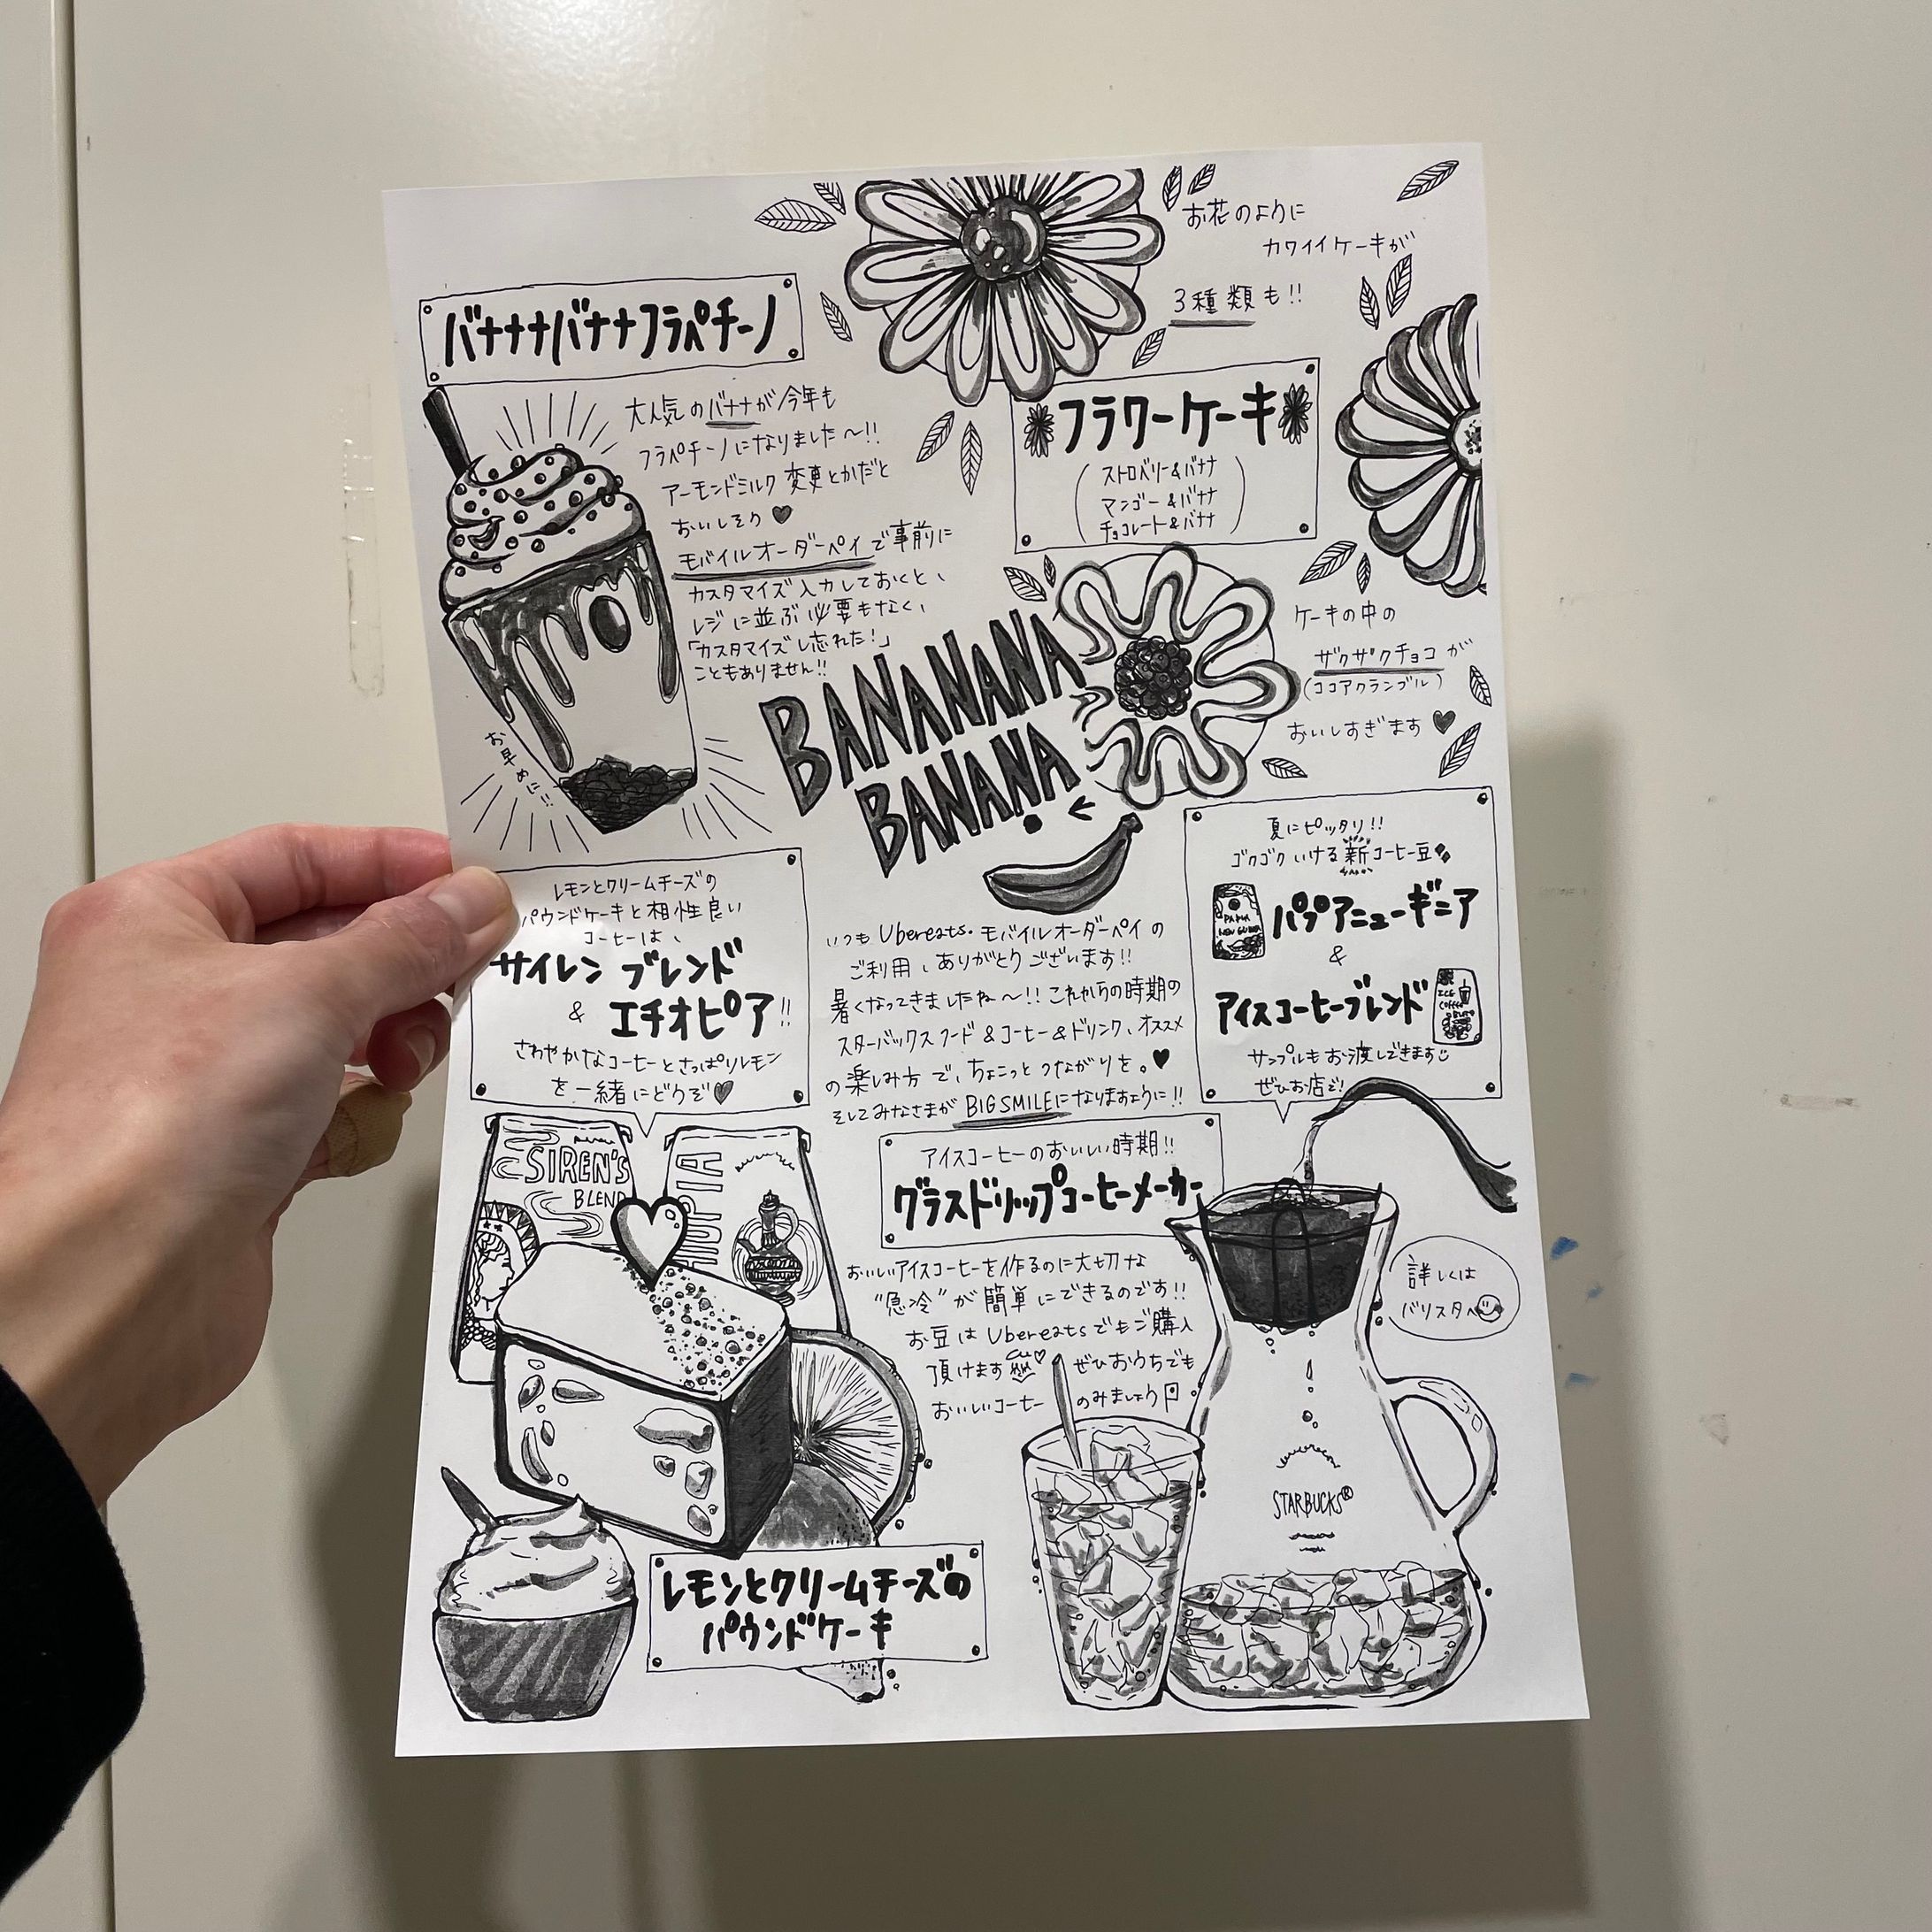 バナナナバナナフラペチーノ
大人気のバナナが今年も
フラペチーノになりました〜!!
アーモンドミルク変更とかだと
おいしそう♥
モバイルオーダーペイで事前に
カスタマイズ入力しておくと、
レジに並ぶ必要もなく、
「カスタマイズし忘れた!」
こともありません!!
お早めに!!
お花のように
カワイイケーキが
3種類も!!
フラワーケーキ
(ストロベリー&バナナ
マンゴー&バナナ
チョコレート&バナナ)
ケーキの中の
ザクザクチョコが
(ココアクランブル)
おいしすぎます♥
BANANANA
BANANA
レモンとクリームチーズの
パウンドケーキと相性良い
コーヒーは、
サイレンブレンド
& エチオピア!!
さわやかなコーヒーとさっぱりレモン
を一緒にどうぞ♥
いつもUbereats・モバイルオーダーペイの
ご利用、ありがとうございます!!
暑くなってきましたね〜!!これからの時期の
スターバックスフード&コーヒー&ドリンク、オススメ
の楽しみ方で、ちょこっとつながりを。♥
そしてみなさまがBIG SMILEになりますように!!
夏にピッタリ!!
ゴクゴクいける新コーヒー豆
PAPUA
NEW GUINEA
パプアニューギニア
&
アイスコーヒーブレンド
ICE
COFFEE
サンプルもお渡しできます
ぜひお店で!
SIREN'S
BLEND
アイスコーヒーのおいしい時期!!
グラスドリップコーヒーメーカー
おいしいアイスコーヒーを作るのに大切な
"急冷"が簡単にできるのです!!
お豆はUbereatsでもご購入
頂けます ぜひおうちでも
おいしいコーヒー のみましょう
詳しくは
バリスタへ
STARBUCKS®
レモンとクリームチーズの
パウンドケーキ